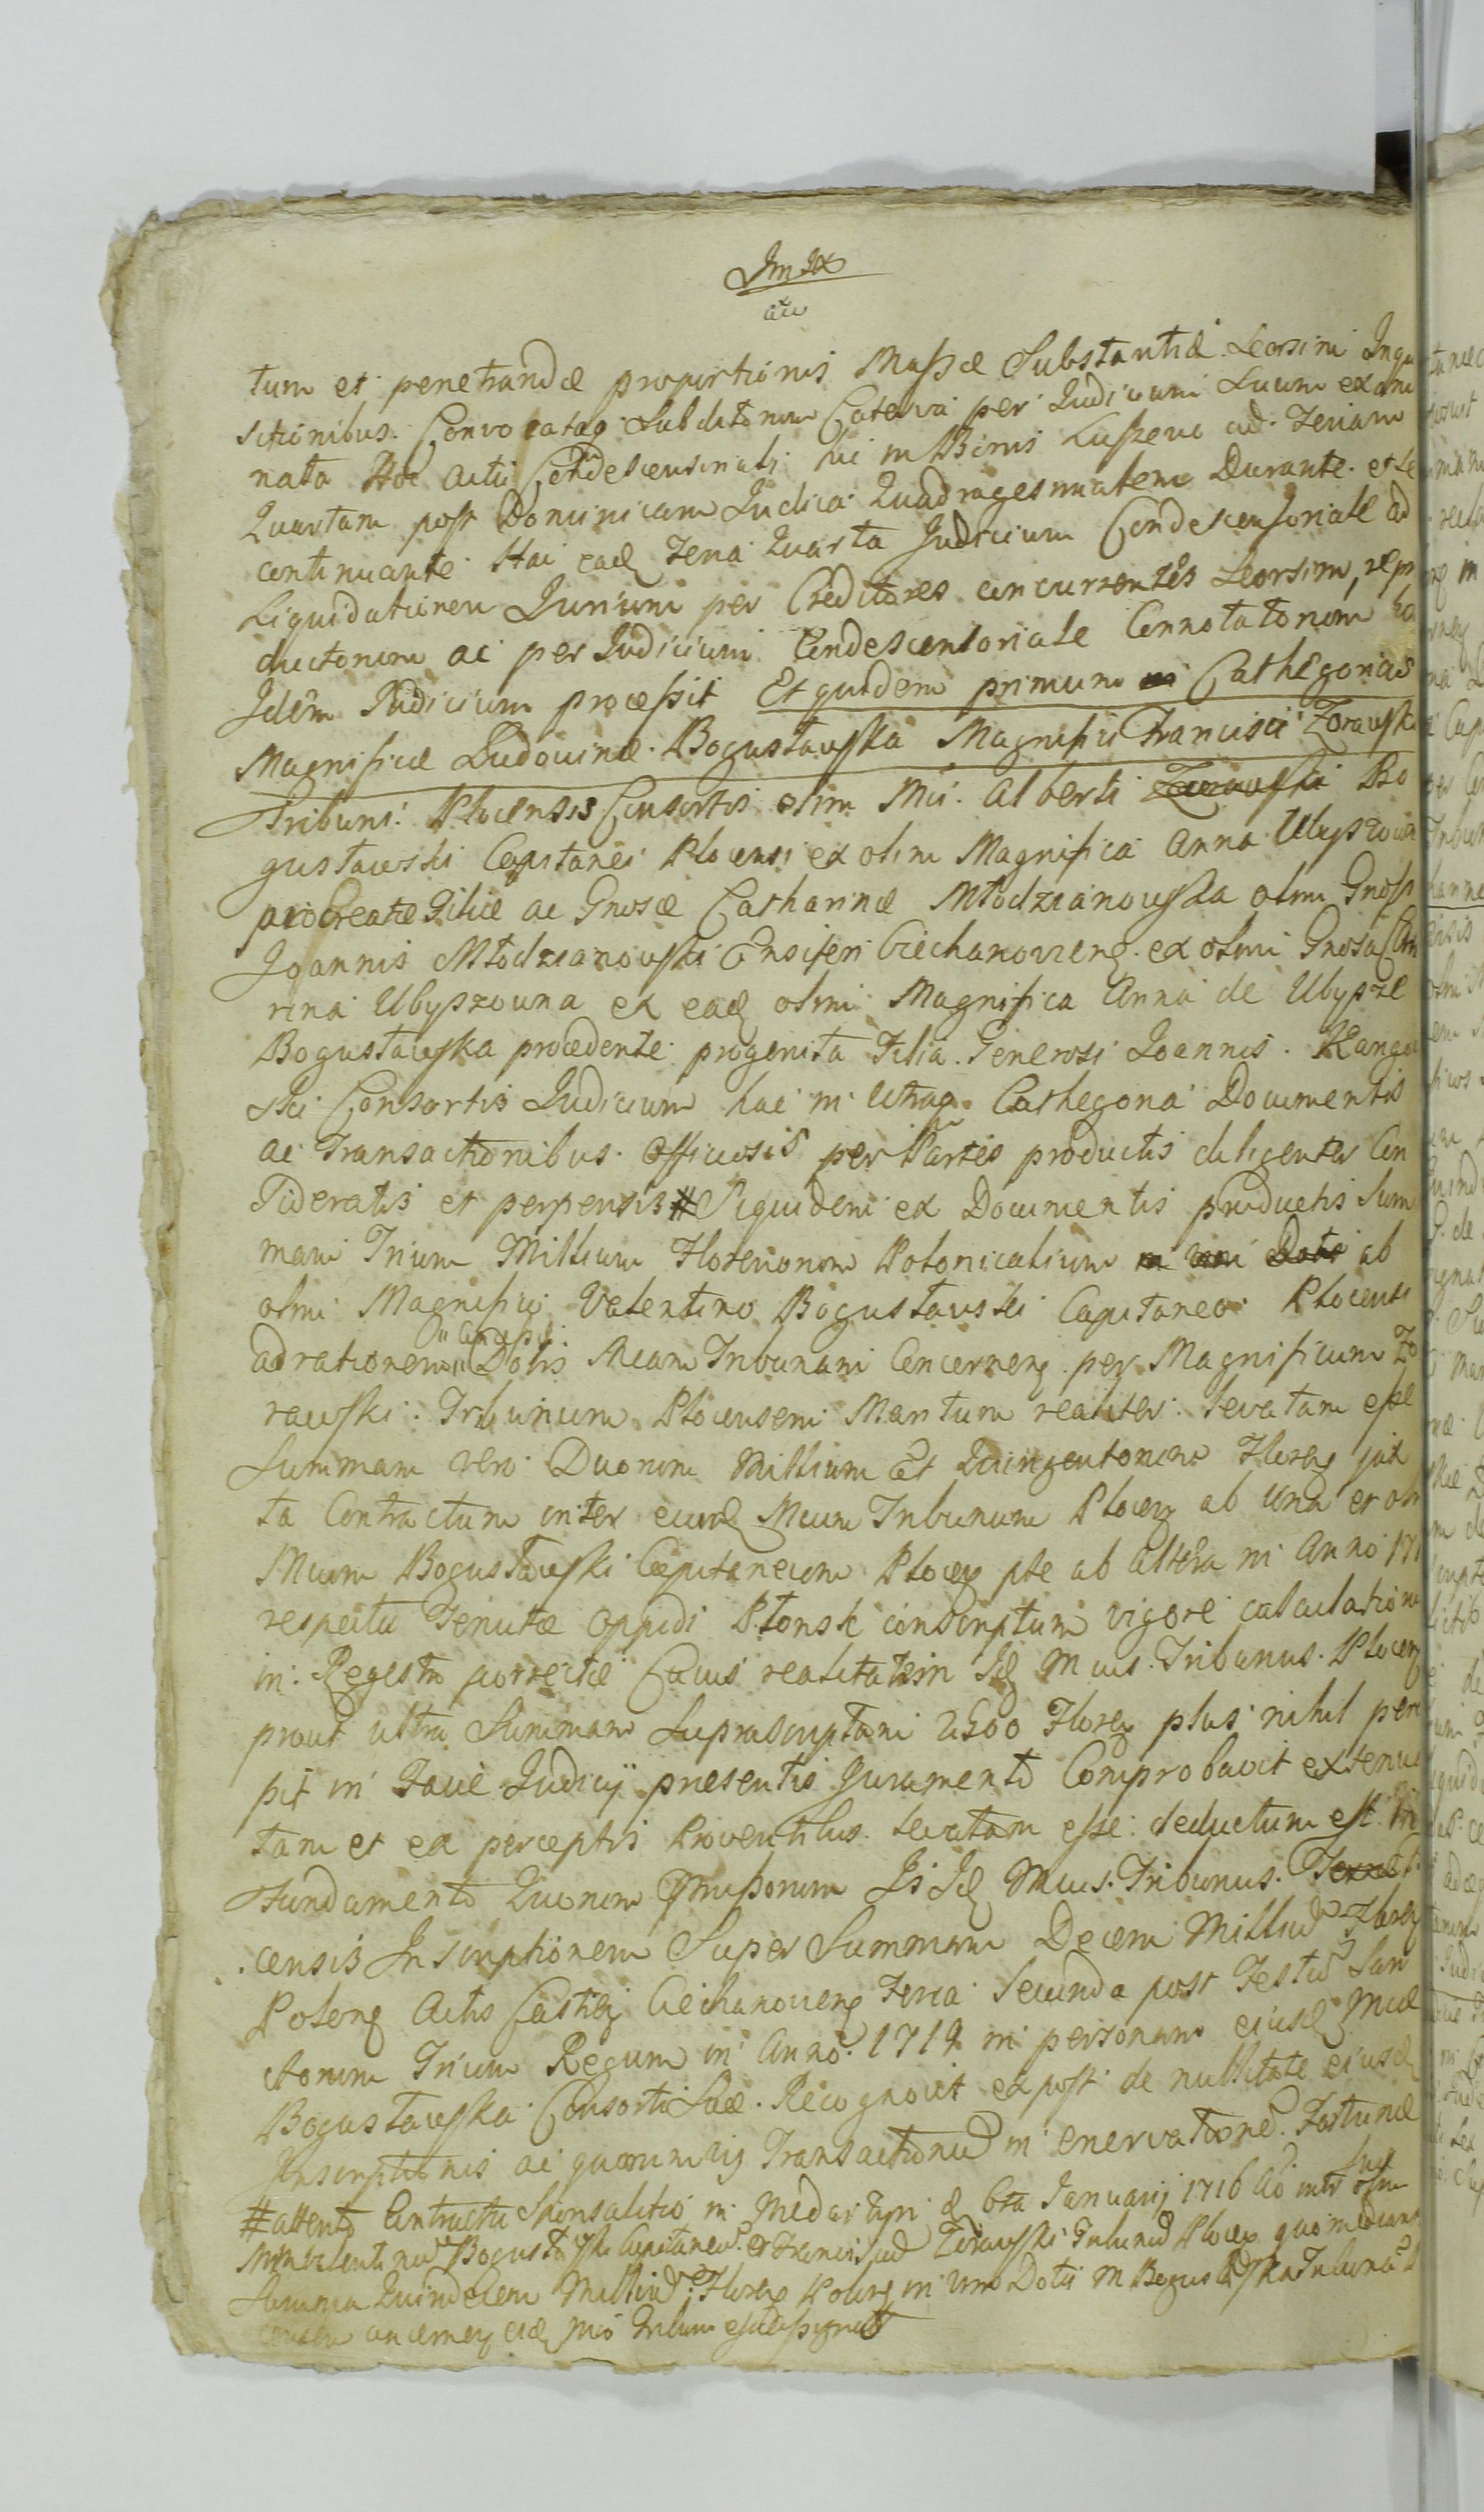 tum et penetrandæ proportionis Massæ Substantiæ Seorsim Inqui
sitionibus. Convocataq Subditorum Caterva per Judicium Suum exami
nata Hoc actu Condescensionali hic in Bonis ad Feriam
Quartam post Dominicam Judica Quadragesimalem Durante et se
continuante Hac eadq Feria Quarta Judicium Condescensoriale ad
Liquidationem Jurium per Creditores concurrentes Seorsim, repro
ductorum ac per Judicium Condescensoriale Connotatorum
Idem Judicium processit Et quidem primum Cathegorias
Magnificæ Ludovinæ Bogustawska Magnifici Francisci Zorawski
Tribuni Plocensis Consortis olim Mci Alberti Zorawski Bo
gustawski Capitanei Plocensi ex olim Magnifica Anna Ubyszowna
procreatæ Filiæ ac Gnosæ Catharinæ Młodzianowska olim Gnosi
Joannis Młodzianowski Ensiferi Ciechanovieng. ex olim Gnosa Cath
rina Ubyszowna ex eadq olim Magnifica Anna de Ubysze
Bogustawska procedente progenita Filia Generosi Joannis
ski Consortis Judicium hac in utraq Cathegoria Documentis
ac Transactionibus Officiosis per Partes productis diligenter Con
sideratis et perpensis # Siquidem ex Documentis productis Sum
mam Trium Millium Florenorum Polonicalium ab
olim Magnifico Valentino Bogustawski Capitaneo Plocensi
ad rationem Dotis Mcam Tribunam Concerneng per Magnificum Zo
rawski Tribunum Plocensem Maritum realiter levatam esse
Summam vero Duorum Millium Et Quingentorum Floreng jux
ta Contractum inter eundq Mcum Tribunum Ploceng ab una et olim
Mcum Bogustawski Capitaneum Ploceng pte ab altera in Anno 171
respectu Tenutæ Oppidi Płonsk conscriptum vigore calculationis
in Regestro porrectæ Cujus realitatem Idq Mcus Tribunus Ploceng
prout ultra Summam Suprascriptam 2500 Floreng plus nihil perce
pit in Facie Judicij præsentis Juramento Comprobavit extenua
tam et ex perceptis Proventibus levatam esse deductum est
Fundamento Quorum Præmissorum Idq Mcus Tribunus
censis Inscriptionem Super Summam Decem Milliu Floreng
Polong Actis Castreng Ciechanovieng Feria Secunda post Festu San
ctorum Trium Regum in Anno 1719 in personam ejusdq Mcæ
Bogustawska Consorti Suæ Recognovit ex post de nullitate ejusdq
Inscriptionis ac quorumvis Transactionu in enervatione Fortunæ
Suæ
# attento Contractu Sponsalitio in 6ta Januarij 1716 Ao inter olim
Bogustawski Capitaneu et Franciscu Zorawski Tribunu Ploceng quo mediante
Summa Quindecem Milliu Floreng Polong in vim Dotis M Bogustawska Tribuna